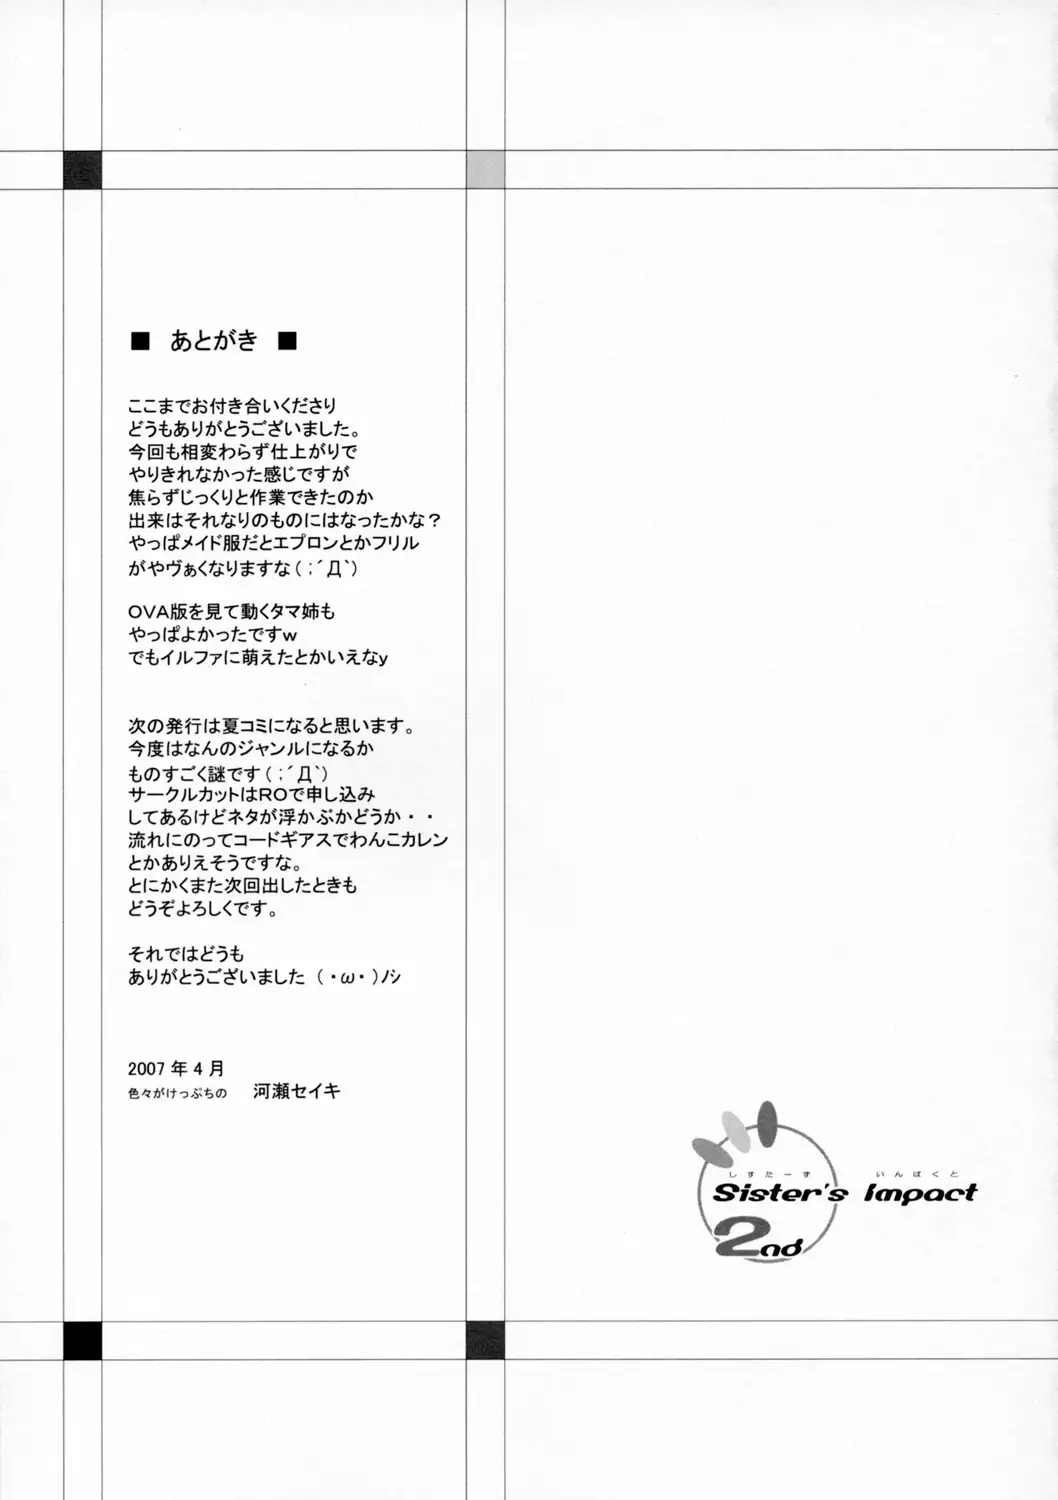 ■ あとがき ■
ここまでお付き合いくださり
どうもありがとうございました。
今回も相変わらず仕上がりで
やりきれなかった感じですが
焦らずじっくりと作業できたのか
出来はそれなりのものにはなったかな？
やっぱメイド服だとエプロンとかフリル
がやヴぁくなりますな(；´Д`)
OVA版を見て動くタマ姉も
やっぱよかったですｗ
でもイルファに萌えたとかいえなｙ
次の発行は夏コミになると思います。
今度はなんのジャンルになるか
ものすごく謎です(；´Д`)
サークルカットはROで申し込み
してあるけどネタが浮かぶかどうか・・
流れにのってコードギアスでわんこカレン
とかありえそうですな。
とにかくまた次回出したときも
どうぞよろしくです。
それではどうも
ありがとうございました （・ω・）ﾉｼ
2007 年 4 月
色々がけっぷちの 河瀬セイキ
しすたーず いんぱくと
Sister's Impact
2nd